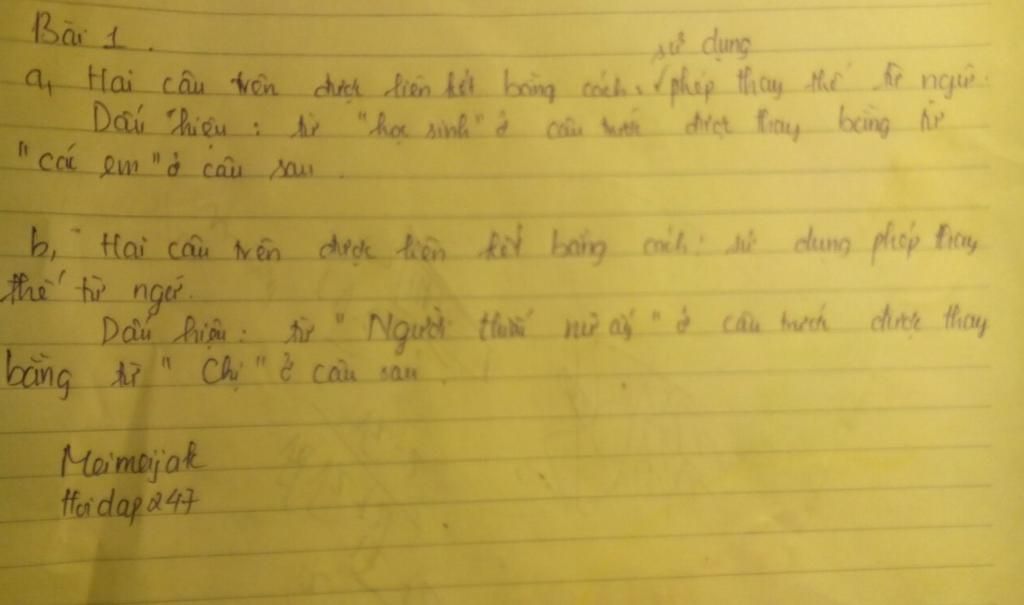 Bài 1.
sử dụng
a, Hai câu trên được liên kết bằng cách: phép thay thế từ ngữ.
Dấu hiệu: từ "học sinh" ở câu trước được thay bằng từ
"các em" ở câu sau.
b, Hai câu trên được liên kết bằng cách: sử dụng phép thay
thế từ ngữ.
Dấu hiệu: từ "Người thiếu nữ ấy" ở câu trước được thay
bằng từ "Chị" ở câu sau.
Meimeijak
Hoidap247